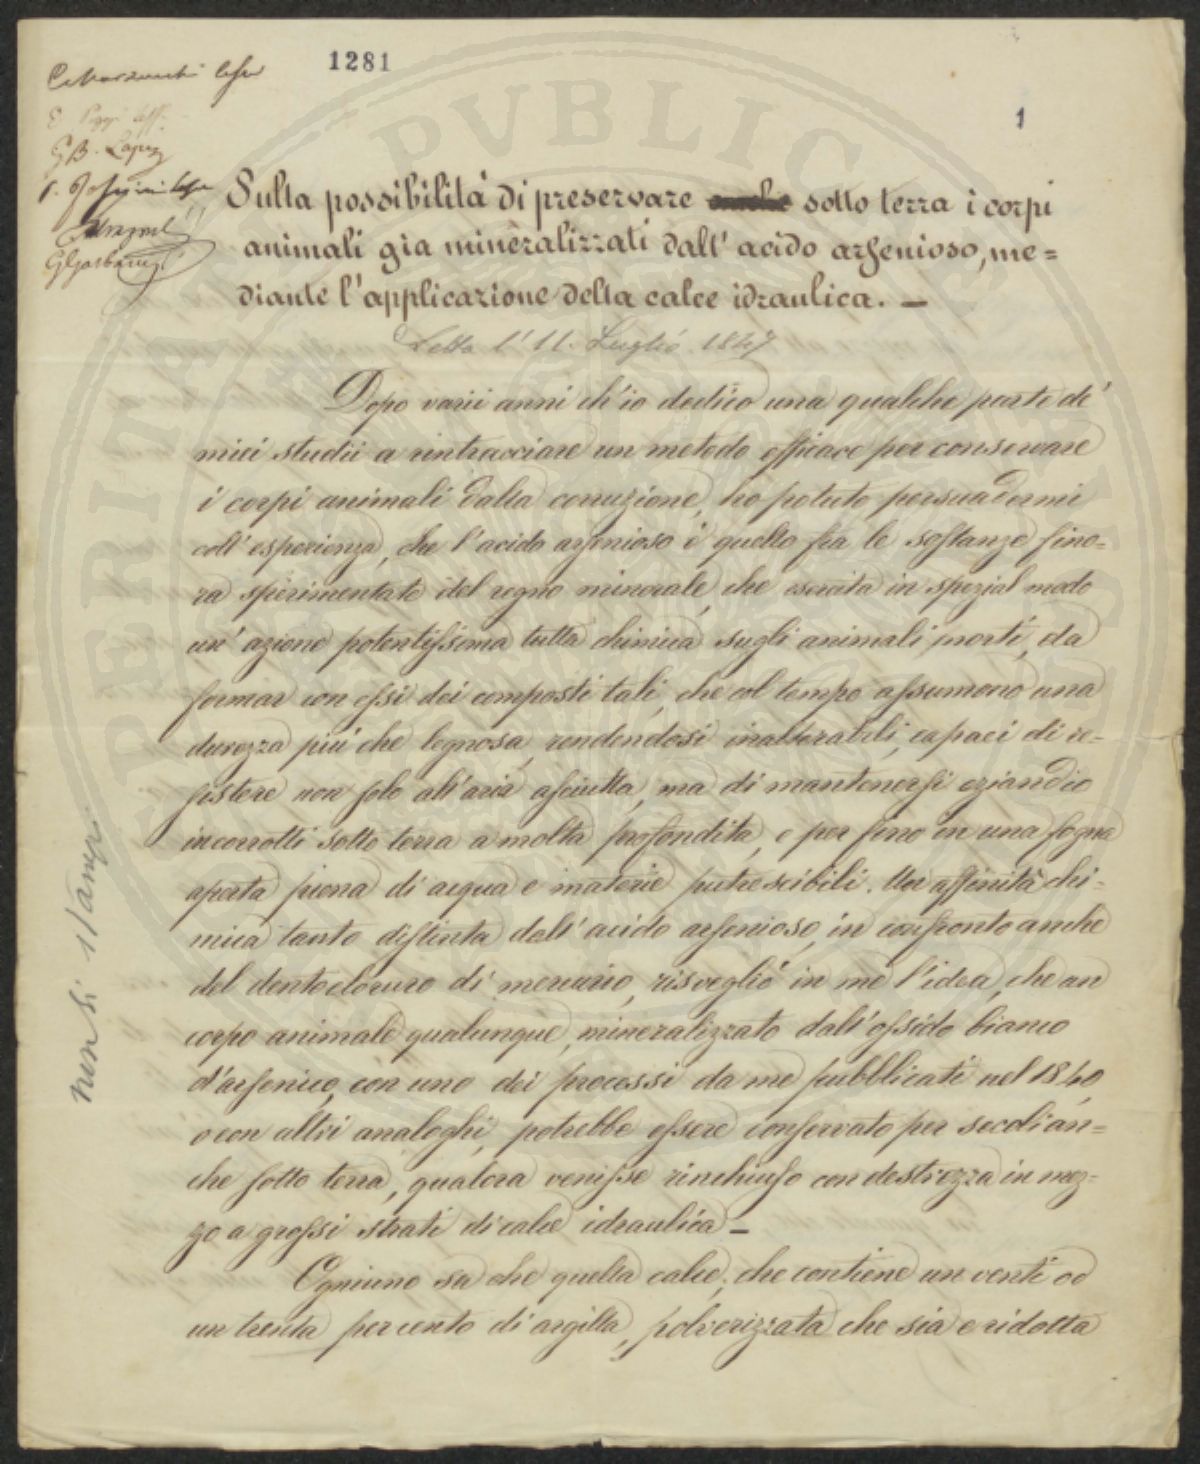 1281
1
G.B. Lapez
Sulla possibilità di preservare anche sotto terra i corpi
animali già mineralizzati dall' acido arsenioso, me=
diante l'applicazione della calce idraulica. —
Letta l' 11. Luglio 1847
Dopo varii anni ch'io dedico una qualche parte de'
miei studii a rintracciare un metodo efficace per conservare
i corpi animali dalla corruzione, ho potuto persuadermi
coll' esperienza, che l'acido arsenioso è quello fra le sostanze fino=
ra sperimentate del regno minerale, che esercita in spezial modo
un' azione potentissima tutta chimica sugli animali morti, da
formar con essi dei composti tali, che col tempo assumono una
durezza più che legnosa, rendendosi inalterabili, capaci di re=
sistere non solo all'aria asciutta, ma di mantenersi eziandio
incorrotti sotto terra a molta profondità, e per fino in una fogna
aperta piena di acqua e materie putrescibili. Un' affinità chi=
mica tanto distinta dell' acido arsenioso, in confronto anche
del deutocloruro di mercurio, risvegliò in me l'idea, che un
corpo animale qualunque, mineralizzato dall'ossido bianco
d'arsenico, con uno dei processi da me pubblicati nel 1840,
o con altri analoghi, potrebbe essere conservato per secoli an=
che sotto terra, qualora venisse rinchiuso con destrezza in mez=
zo a grossi strati di calce idraulica —
Ogniuno sa che quella calce, che contiene un venti od
un trenta per cento di argilla, polverizzata che sia e ridotta
non si stampi.
SPERITAT PVBLIC